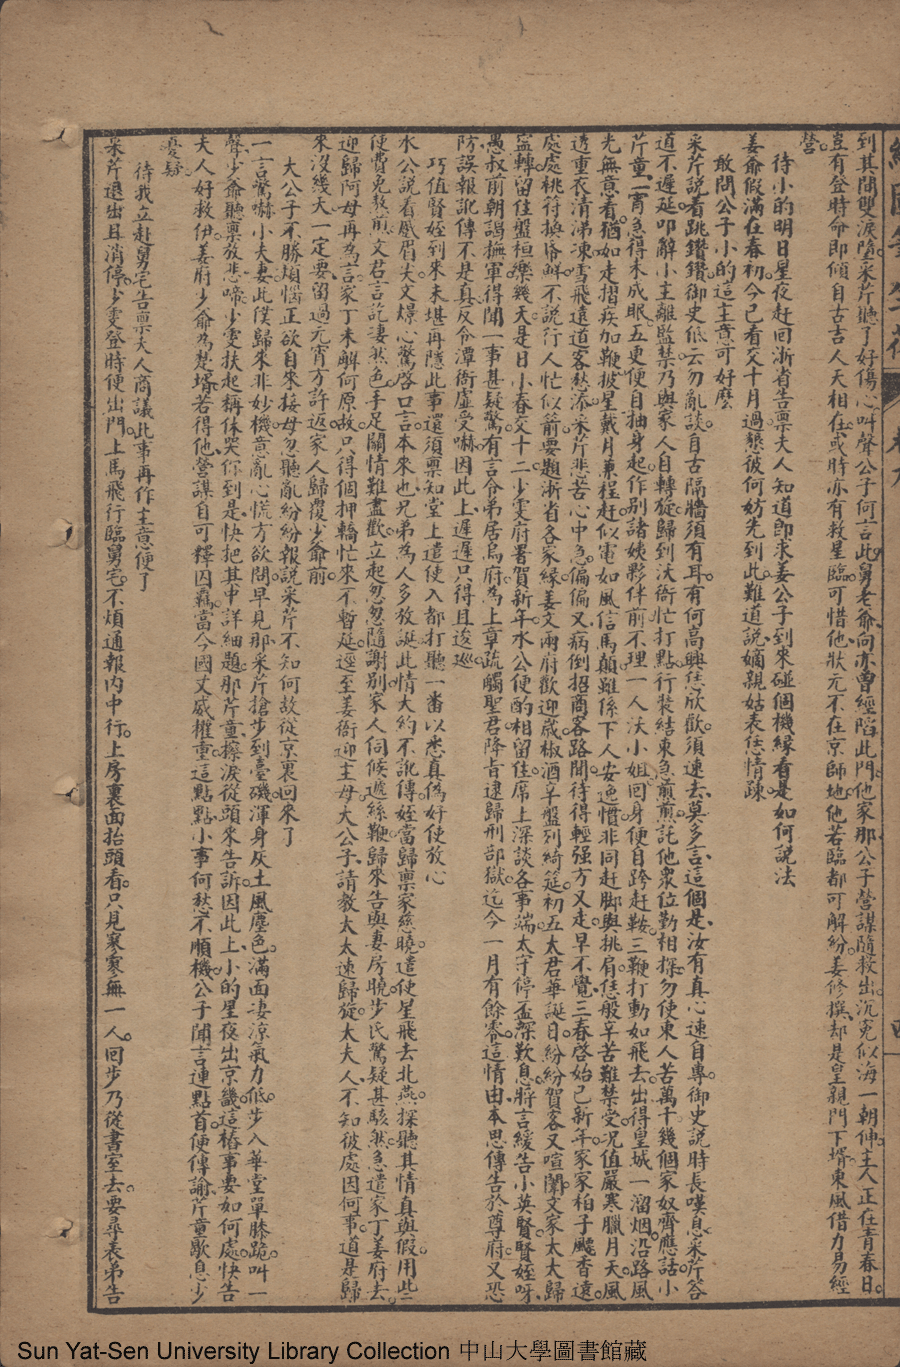 到其間雙淚墮采芹聽了好傷心叫聲公子何言此舅老爺向亦曾經陷此門他家那公子營謀隨救出沉冤似海一朝伸主人正在青春日
豈有登時命即傾自古吉人天相在或時亦有救星臨可惜他狀元不在京師地他若臨都可解紛姜修撰却是皇親門下壻東風借力易經
營
待小的明日星夜赶回浙省告禀夫人知道即求姜公子到來碰個機緣看是如何說法
姜爺假滿在春初今已看交十月過懇彼何妨先到此難道說嫡親姑表恁情疎
敢問公子小的這主意可好麼
采芹說着跳鑽鑽御史低云勿亂談自古隔牆須有耳有何高興恁欣歡須速去莫多言這個是汝有真心速自專御史說時長嘆息采芹答
道不遲延叩辭小主離監禁乃與家人自轉旋歸到沃衙忙打點行裝結束急煎煎託他衆位勤相探勿使東人苦萬千幾個家奴齊應話小
芹童一宵急得未成眠五更便自抽身起作別諸姨夥伴前不理一人沃小姐回身便自跨赶鞍三鞭打動如飛去出得皇城一溜烟沿路風
光無意看猶如走摺疾加鞭披星戴月兼程赶似電如風信馬顛雖係下人安逸慣非同赶脚與挑肩恁般辛苦難禁受况值嚴寒臘月天風
透重衣清涕凍雪飛遠道客愁添采芹悲苦心中急偏偏又病倒招商客路間待得輕强方又走早不覺三春啓始已新年家家柏子飈香遠
處處桃符換舊鮮不說行人忙似箭要題浙省各家緣姜文兩府歡迎歲椒酒辛盤列綺筵初五太君華誕日紛紛賀客又喧闐文家太太歸
寗轉留住盤桓樂幾天是日小春交十二少雯府署賀新年水公便酌相留住席上深談各事端太守停盃深歎息將言緩告小英賢賢姪呀
愚叔前朝謁撫軍得聞一事甚疑驚有言令弟居烏府為上章疏觸聖君降旨逮歸刑部獄迄今一月有餘零這情由本思傳告於尊府又恐
防誤報訛傳不是真反令潭衙虛受嚇因此上遲遲只得且逡巡
巧值賢姪到來未堪再隱此事還須禀知堂上遣使入都打聽一番以悉真偽好使放心
水公說着慼眉尖文嫖心驚啓口言本來也兄弟為人多放誕此情大約不訛傳姪當歸禀家慈曉遣使星飛去北燕探聽其情真與假用些
使費免熬煎文君言訖凄然色手足關情難盡歡立起忽忽隨謝別家人伺候遞絲鞭歸來告與妻房曉步氏驚疑甚駭然急遣家丁姜府去
迎歸阿母再為言家丁未解何原故只得個押轎忙來不暫延逕至姜衙迎主母大公子請教太太速歸旋太夫人不知彼處因何事道是歸
來沒幾天一定要留過元宵方許返家人歸覆少爺前
大公子不勝煩惱正欲自來接母忽聽亂紛紛報說采芹不知何故從京裏回來了
一言驚嚇小夫妻此僕歸來非妙機意亂心慌方欲問早見那采芹搶步到臺磯渾身灰土風塵色滿面凄涼氣力低步入華堂單膝跪叫一
聲少爺聽禀教悲啼少雯扶起稱休哭你到是快把其中詳細題那芹童擦淚從頭來告訴因此上小的星夜出京畿這樁事要如何處快告
夫人好救伊姜府少爺為楚壻若得他營謀自可釋囚羈當今國丈威權重這點點小事何愁不順機公子聞言連點首便傳諭芹童歇息少
憂疑
待我立赴舅宅告禀夫人商議此事再作主意便了
采芹退出且消停少雯登時便出門上馬飛行臨舅宅不煩通報內中行上房裏面抬頭看只見寥寥無一人回步乃從書室去要尋表弟告
Sun Yat-Sen University Library Collection 中山大學圖書館藏